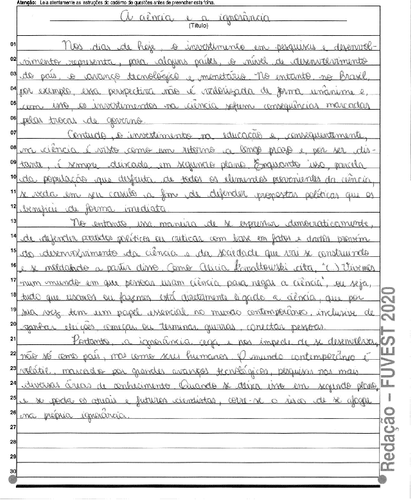 Atenção: Leia atentamente as instruções do caderno de questões antes de preencher esta folha.
A ciência e a ignorância
(Título)
01 Nos dias de hoje, o investimento em pesquisas e desenvol-
02 vimento representa, para alguns países, o nível de desenvolvimento
03 do país, o avanço tecnológico e monetário. No entanto no Brasil,
04 por exemplo, essa perspectiva não é valorizada de forma unânime e,
05 com isso, os investimentos na ciência sofrem consequências marcadas
06 pelas trocas de governo.
07 Contudo, o investimento na educação e, consequentemente,
08 na ciência é visto como um retorno a longo prazo e, por ser dis-
09 tante, é sempre deixada em segundo plano. Enquanto isso, parcela
10 da população que desfruta de todos os elementos provenientes da ciência,
11 se veda em seu casulo a fim de defender propostas políticas que os
12 beneficie de forma imediata.
13 No entanto uma maneira de se expressar democraticamente,
14 de defender partidos políticos ou criticas com base em fatos e dados provém
15 do desenvolvimento da ciência e da sociedade que vai se construindo
16 e se moldando a partir disso. Como Alicia Kowaltowski cita, "Vivemos
17 num mundo em que pessoas usam ciência para negar a ciência", ou seja,
18 tudo que usamos ou fazemos está diretamente ligado a ciência, que por
19 sua vez tem um papel essencial no mundo contemporâneo, inclusive de
20 ganhar eleições começar ou terminar guerras, conectar pessoas.
21 Portanto, a ignorância cega e nos impede de se desenvolver,
22 não só como país, mas como seres humanos. O mundo contemporâneo é
23 volátil, marcado por grandes avanços tecnológicos, pesquisas nas mais
24 diversas áreas de conhecimento. Quando se deixa isso em segundo plano,
25 e se poda os atuais e futuros cientistas, corre-se o risco de se afogar
26 na própria ignorância.
27
28
29
30
Redação – FUVEST 2020